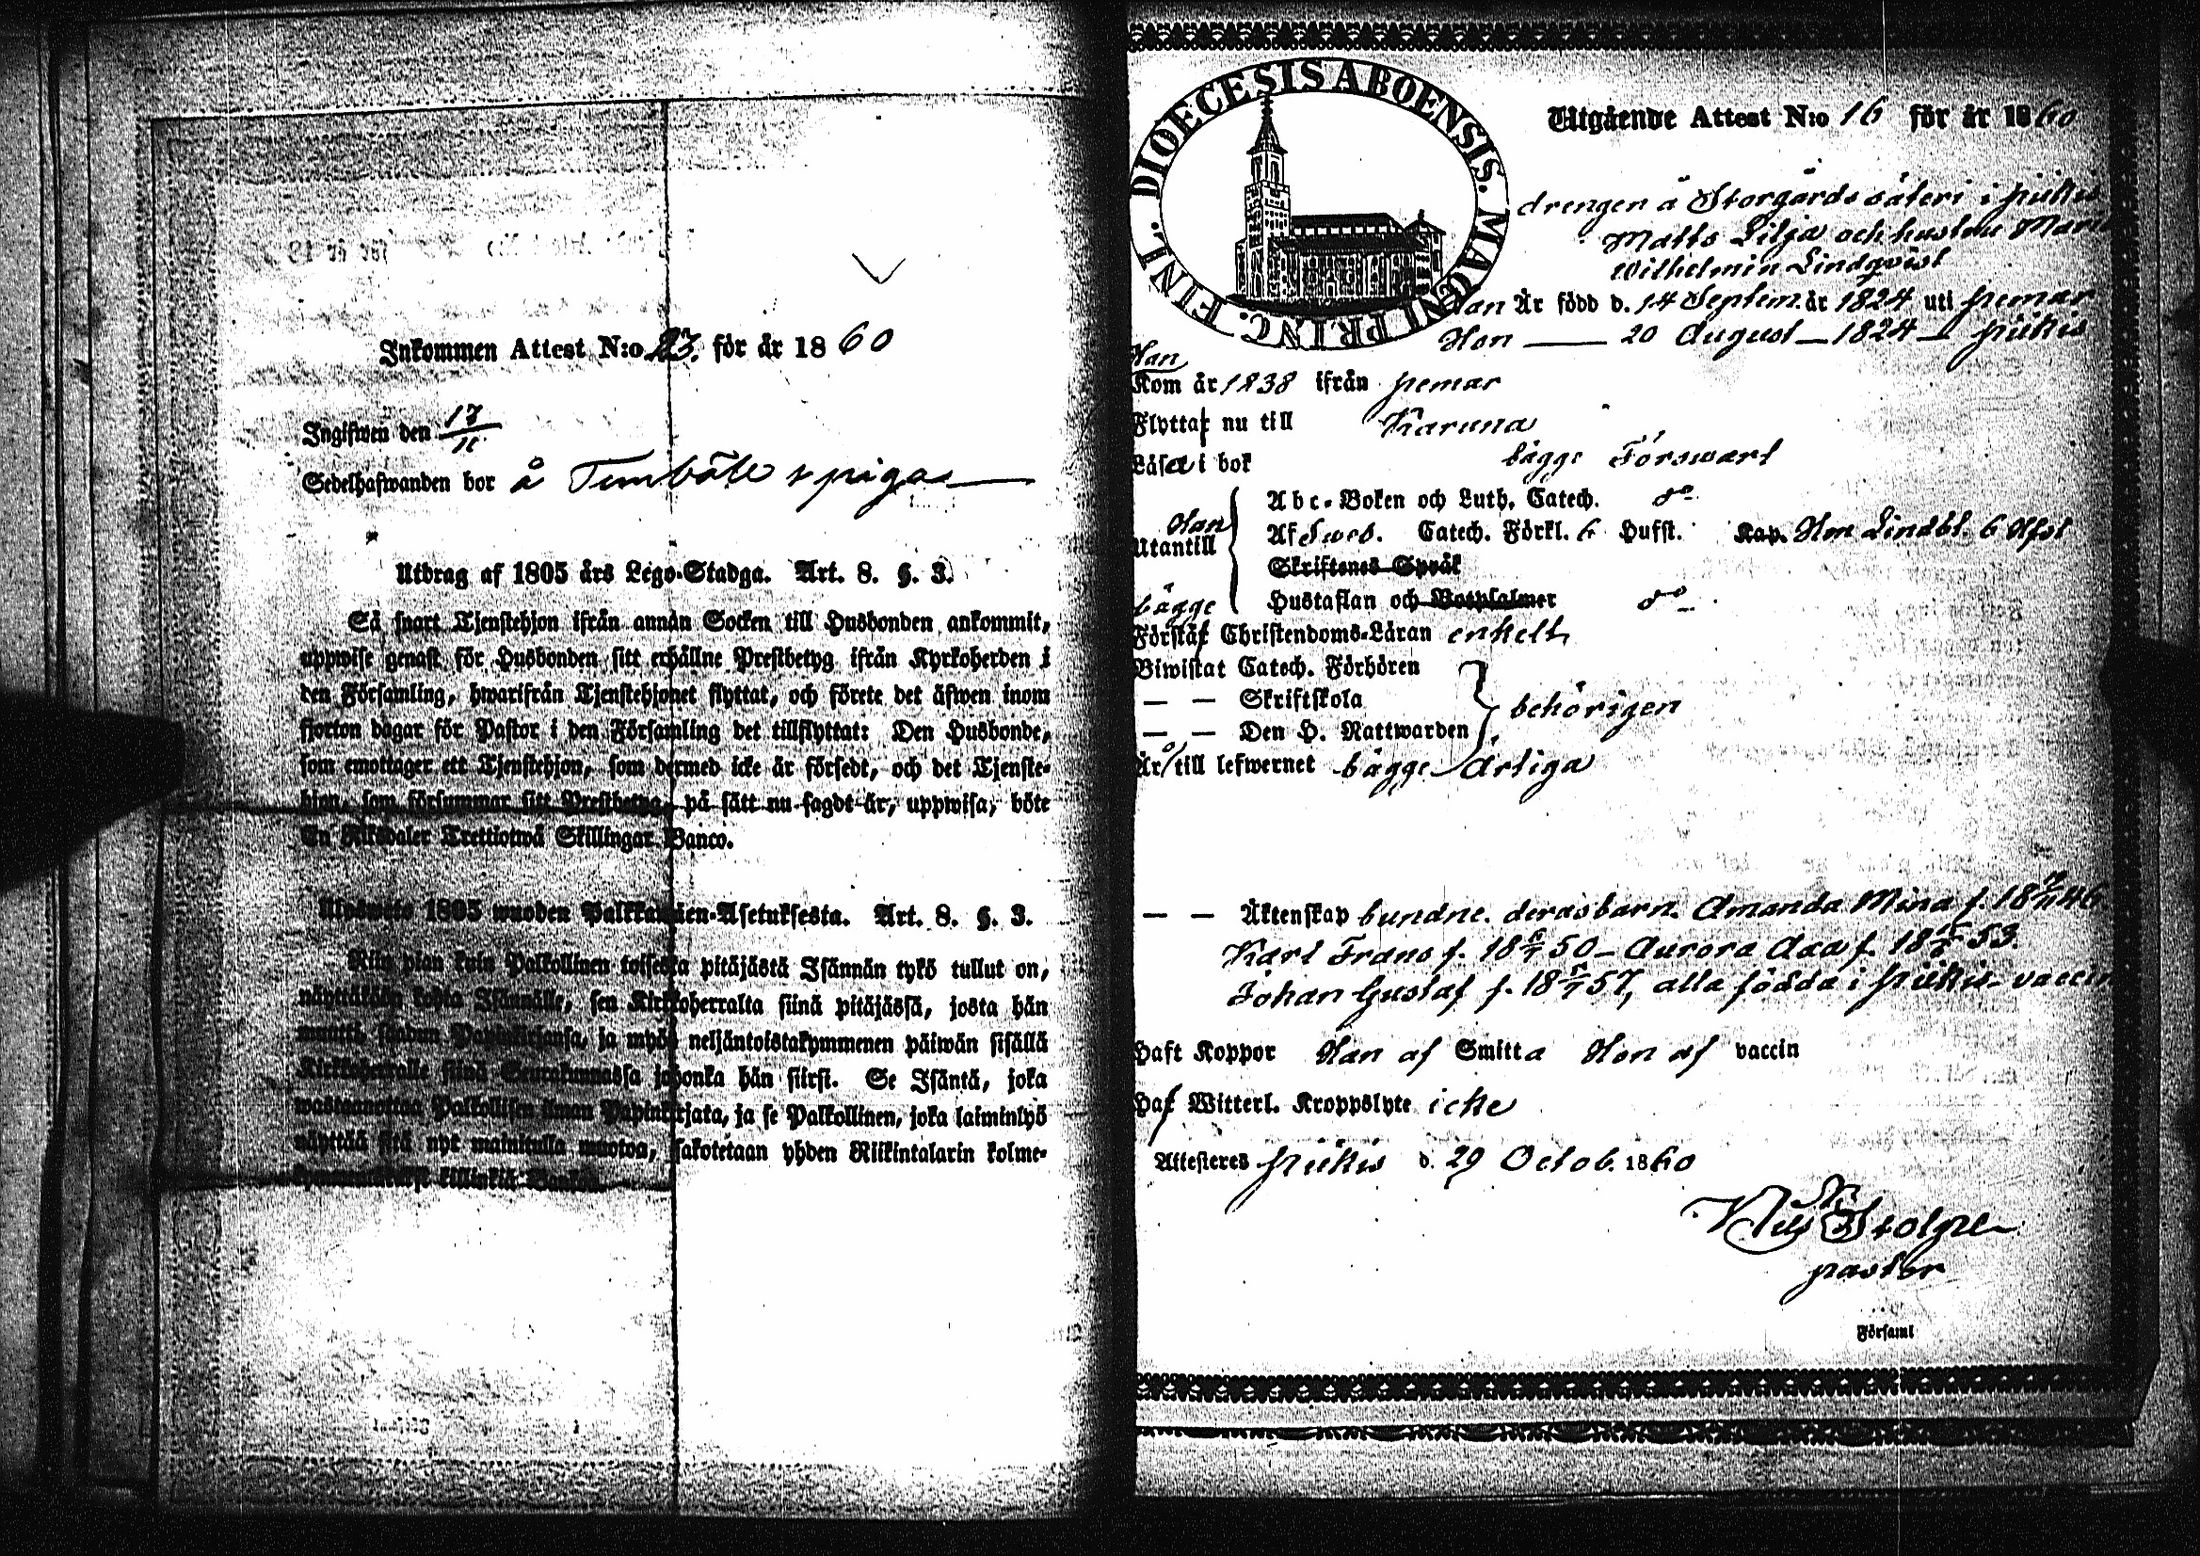 Inkommen Attest N:o 23. för år 1860
Ingifwen den 17/11
Sedelhafwanden bor å
Utdrag af 1805 års Lego-Stadga. Art. 8. §. 3.
Så snart Tjenstehjon ifrån annan Socken till Husbonden ankommit,
uppwise genast för Husbonden sitt erhållne Prestbetyg ifrån Kyrkoherden i
den Församling, hwarifrån Tjenstehjonet flyttat, och förete det äfwen inom
fjorton dagar för Pastor i den Församling det tillflyttat: Den Husbonde,
som emottager ett Tjenstehjon, som dermed icke är försedt, och det Tjenste-
hjon, som försummar sitt Prestbetyg, på sätt nu sagdt är, uppwisa, böte
En Riksdaler Trettiotwå Skillingar Banco.
Ulosweto 1805 wuoden Palkkawäen-Asetuksesta. Art. 8. §. 3.
Niin pian kuin Palkollinen toisesta pitäjästä Isännän tykö tullut on,
näyttäköön kohta Isännälle, sen Kirkkoherralta siinä pitäjässä, josta hän
muutti, saadun Papinkirjansa, ja myös neljäntoistakymmenen päiwän sisällä
Kirkkoherralle siinä Seurakunnassa johonka hän siirsi. Se Isäntä, joka
wastaanottaa Palkollisen ilman Papinkirjata, ja se Palkollinen, joka laiminlyö
näyttää sitä nyt mainitulla muotoa, sakotetaan yhden Riikintalarin kolme-
killinkiä Bankoa.
DIOECESIS ABOENSIS. MAGNI PRINC. FINL.
Utgående Attest N:o 16 för år 1860
drengen å Storgårds säteri i piikis
Matts Lilja och hustru Maria
Wilhelmin Lindqvist
Han Är född d. 14 Septem. år 1824 uti pemar
Hon — 20 August — 1824 — piikis
Han
Kom år 1838 ifrån pemar
Flyttar nu till Karuna
Läsa i bok bägge Förswarl
Abc-Boken och Luth. Catech. do
Han
Utantill Af Sweb. Catech. Förkl. 6 Hufst. Kap. Hon Lindbl. 6 Hfst
Skriftenes Språk
bägge Hustaflan och Botpsalmer do
Förstår Christendoms-Läran enkelt,
Biwistat Catech. Förhören
— — Skriftskola behörigen
— — Den H. Nattwarden
Är till lefwernet bägge Ärliga
— — Äktenskap bundne. deras barn. Amanda Mina f. 18 46
Karl Frans f. 18 50 - Aurora Ada f. 18 53.
Johan Gustaf f. 18 57, alla födda i piikis - vaccin
Haft Koppor Han af Smitta Hon af vaccin
Haf Witterl. Kroppslyte icke
Attesteres piikis d. 29 Octob. 1860
pastor
Församl